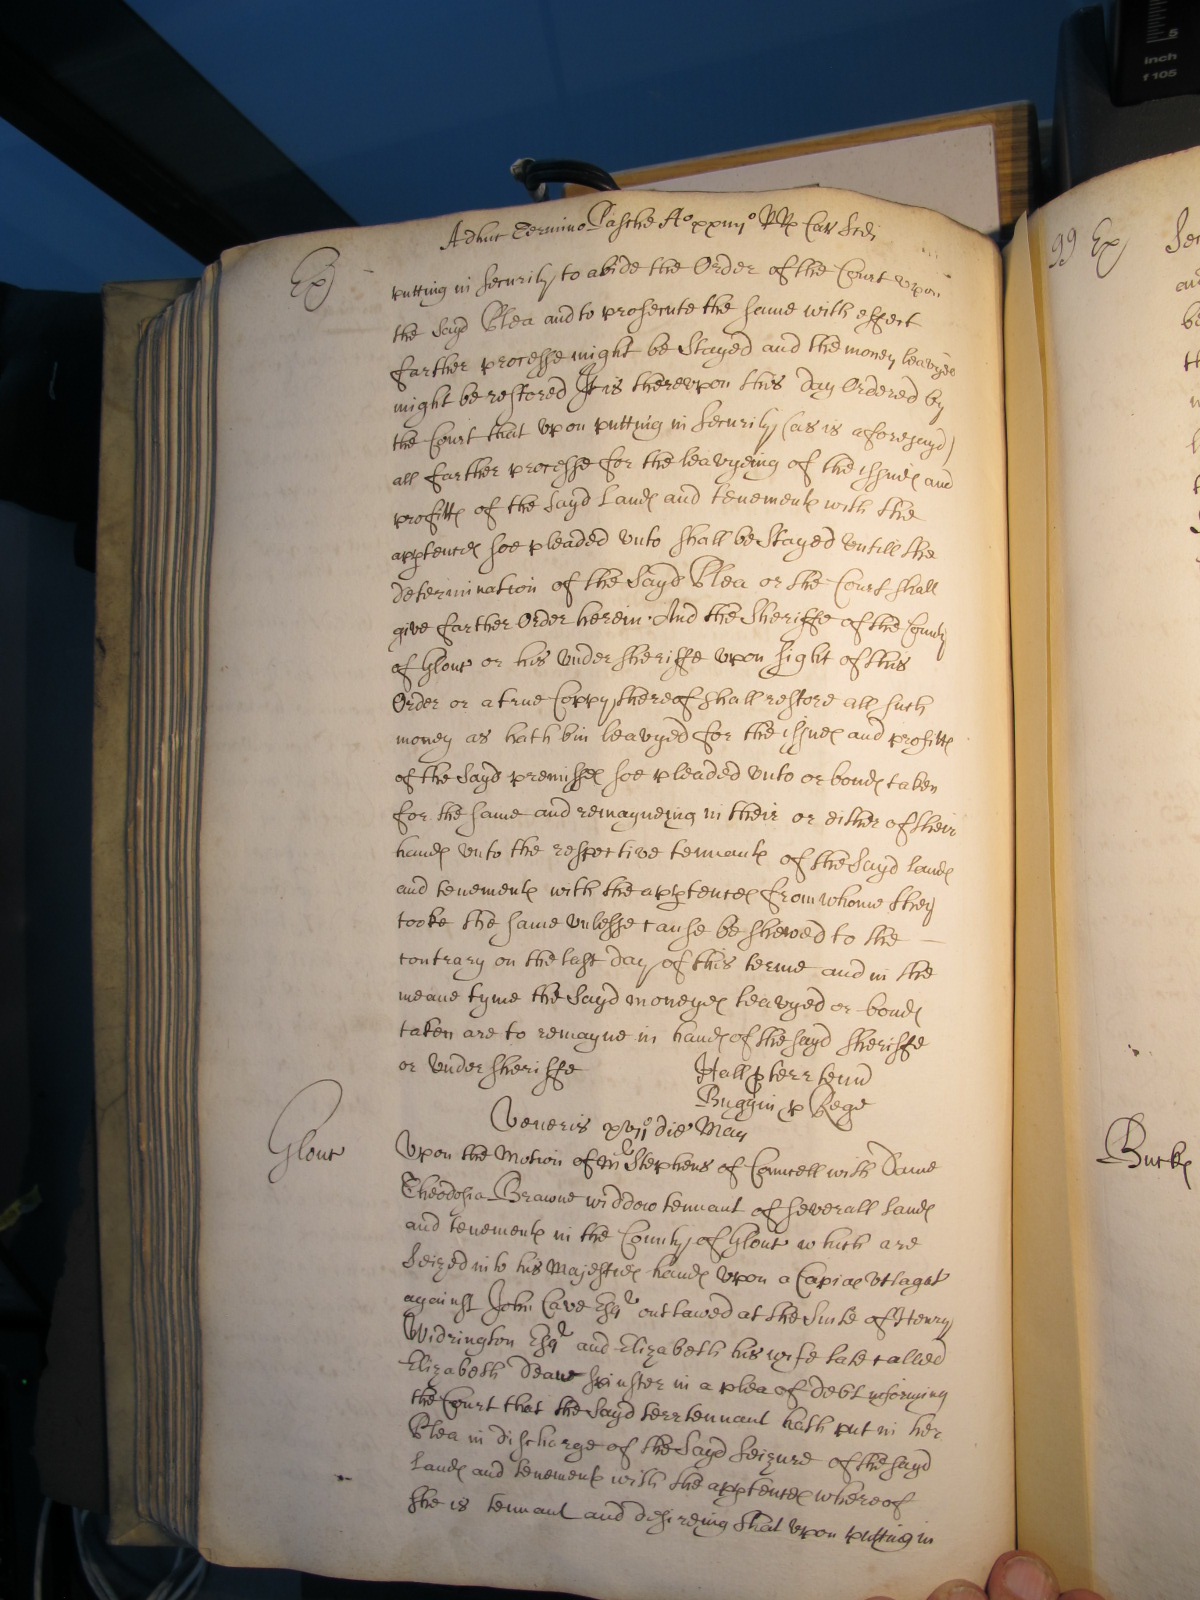 Adhuc Termino Pasche Ao xxiiijo RRs Car Scdi
Ex
putting in Security to abide the Order of the Court vpon
the Sayd Plea and to prosecute the same with effect
farther processe might be Stayed and the money leavyed
might be restored It is therevpon this day Ordered by
the Court that vpon putting in Security (as is aforesayd)
all farther processe for the leavyeing of the issues and
profitts of the Sayd Lands and tenements with the
apptences soe pleaded vnto shall be Stayed vntill the
determination of the Sayd Plea or the Court shall
give farther Order herein. And the Sheriffe of the County
of Glouc or his vndersheriffe vpon Sight of this
Order or a true Coppy thereof shall restore all such
money as hath bin leavyed for the issues and profitts
of the Sayd premisses soe pleaded vnto or bonds taken
for the same and remayneing in their or either of their
hands vnto the respective tennants of the Sayd lands
and tenements with the apptences from whome they
tooke the same vnlesse cause be shewed to the
contrary on the last day of this terme and in the
meane tyme the Sayd moneyes leavyed or bonds
taken are to remayne in hands of the sayd Sheriffe
or vndersheriffe
Hall p terr tennt
Buggin p Rege
Veneris xvijo die May
Glouc
Vpon the Motion of Mr Stephens of Councell with Dame
Theodosia Browne widdow tennant of severall lands
and tenements in the County of Glouc which are
Seized into his Majesties hands vpon a Capias vtlagat
against John Cave Esqr outlawed at the Suite of Henry
Widrington Esqr and Elizabeth his wife late called
Elizabeth Deane spinster in a plea of debt informing
the Court that the Sayd terrtennant hath put in her
Plea in discharge of the Sayd Seizure of the sayd
Lands and tenements with the apptences whereof
She is tennant and desireing that vpon putting in
99 Ex
Bucks
5
inch
f 105